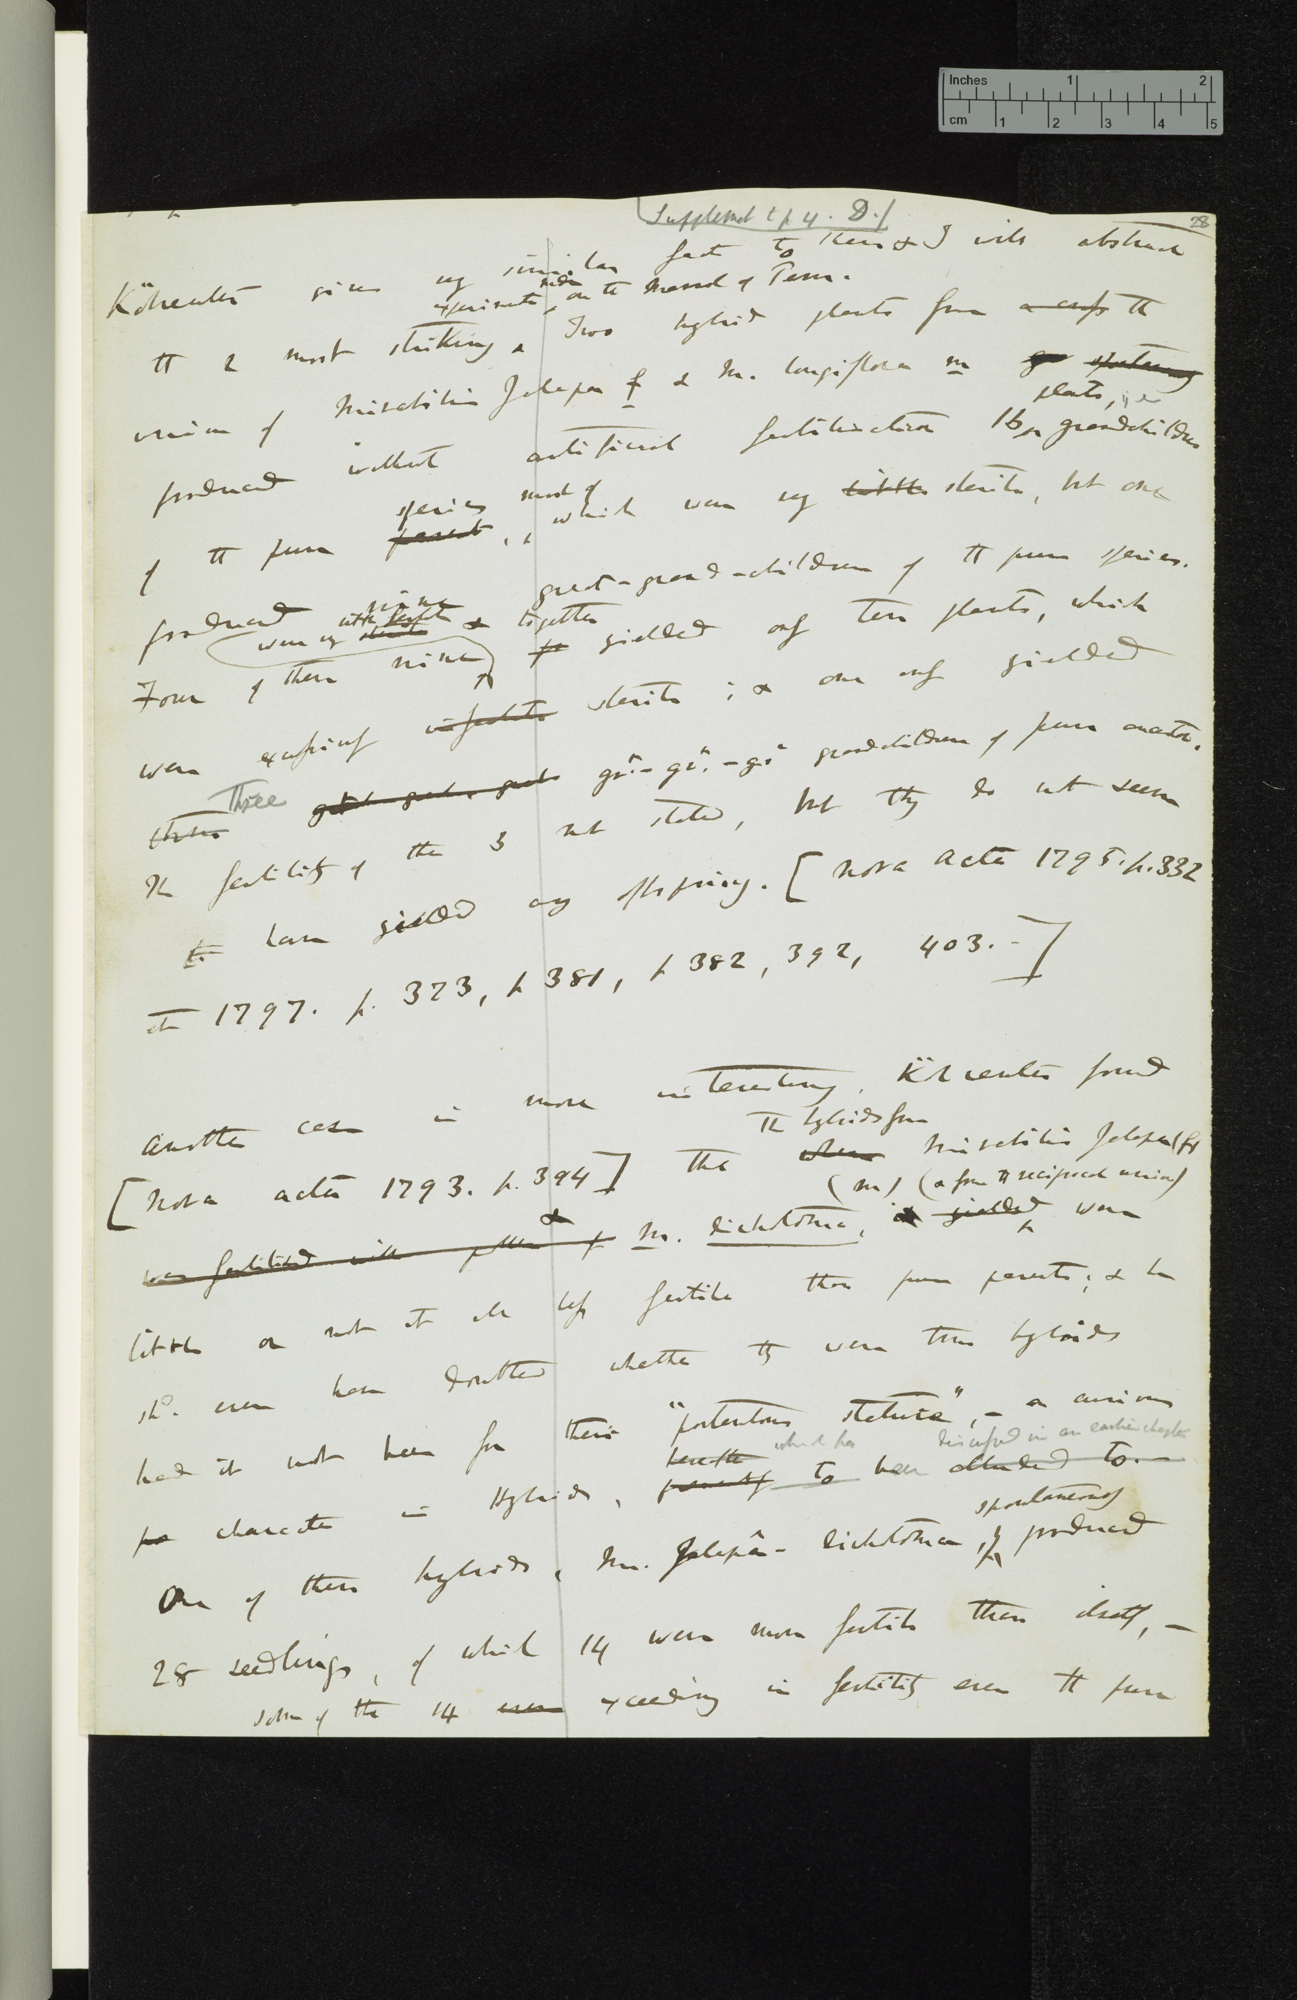 Supplement to p 4. D.)
28
Kölreuter gives very similar fact to these & I will abstract
experiments made on the Marvel of Peru.
the 2 most striking. Two hybrid plants from a cross the
union of Mirabilis Jalapa f & M. longiflora m spontaneously
plants,
produced without artificial fertilisation 16 grandchildren
species most of
of the pure parent, which were very little sterile, but one
produced nine great-grand-children of the pure species.
were very little fertile & together
Four of these nine yielded only ten plants, which
were excessively infertile sterile; & one only yielded
Three
three great great great gr.- gr. -gr grandchildren of pure ancestor.
The fertility of the 3 not stated, but they do not seem
to have yielded any offspring. [Nova Acta 1795. p. 332
1797. p. 373, p 381, p 382, 392, 403.-]
Another case is more interesting, Kölreuter found
The hybrids from
[Nova acta 1793. p. 394] that when Mirabilis Jalapa (f)
(m) (& from the reciprocal union)
was fertilised with pollen of & M. dichotoma, yielded were
little or not at all less fertile than pure parents; & he
shd. even have doubted whether they were true hybrids
had it not been for their "portentous stature",- a curious
which has discussed in an earlier chapter
character in Hybrids, presently to be alluded to.-
spontaneously
One of these hybrids, M. Jalapa- dichotoma, produced
28 seedlings, of which 14 were more fertile than itself,-
some of the 14 even exceeding in fertility even the pure